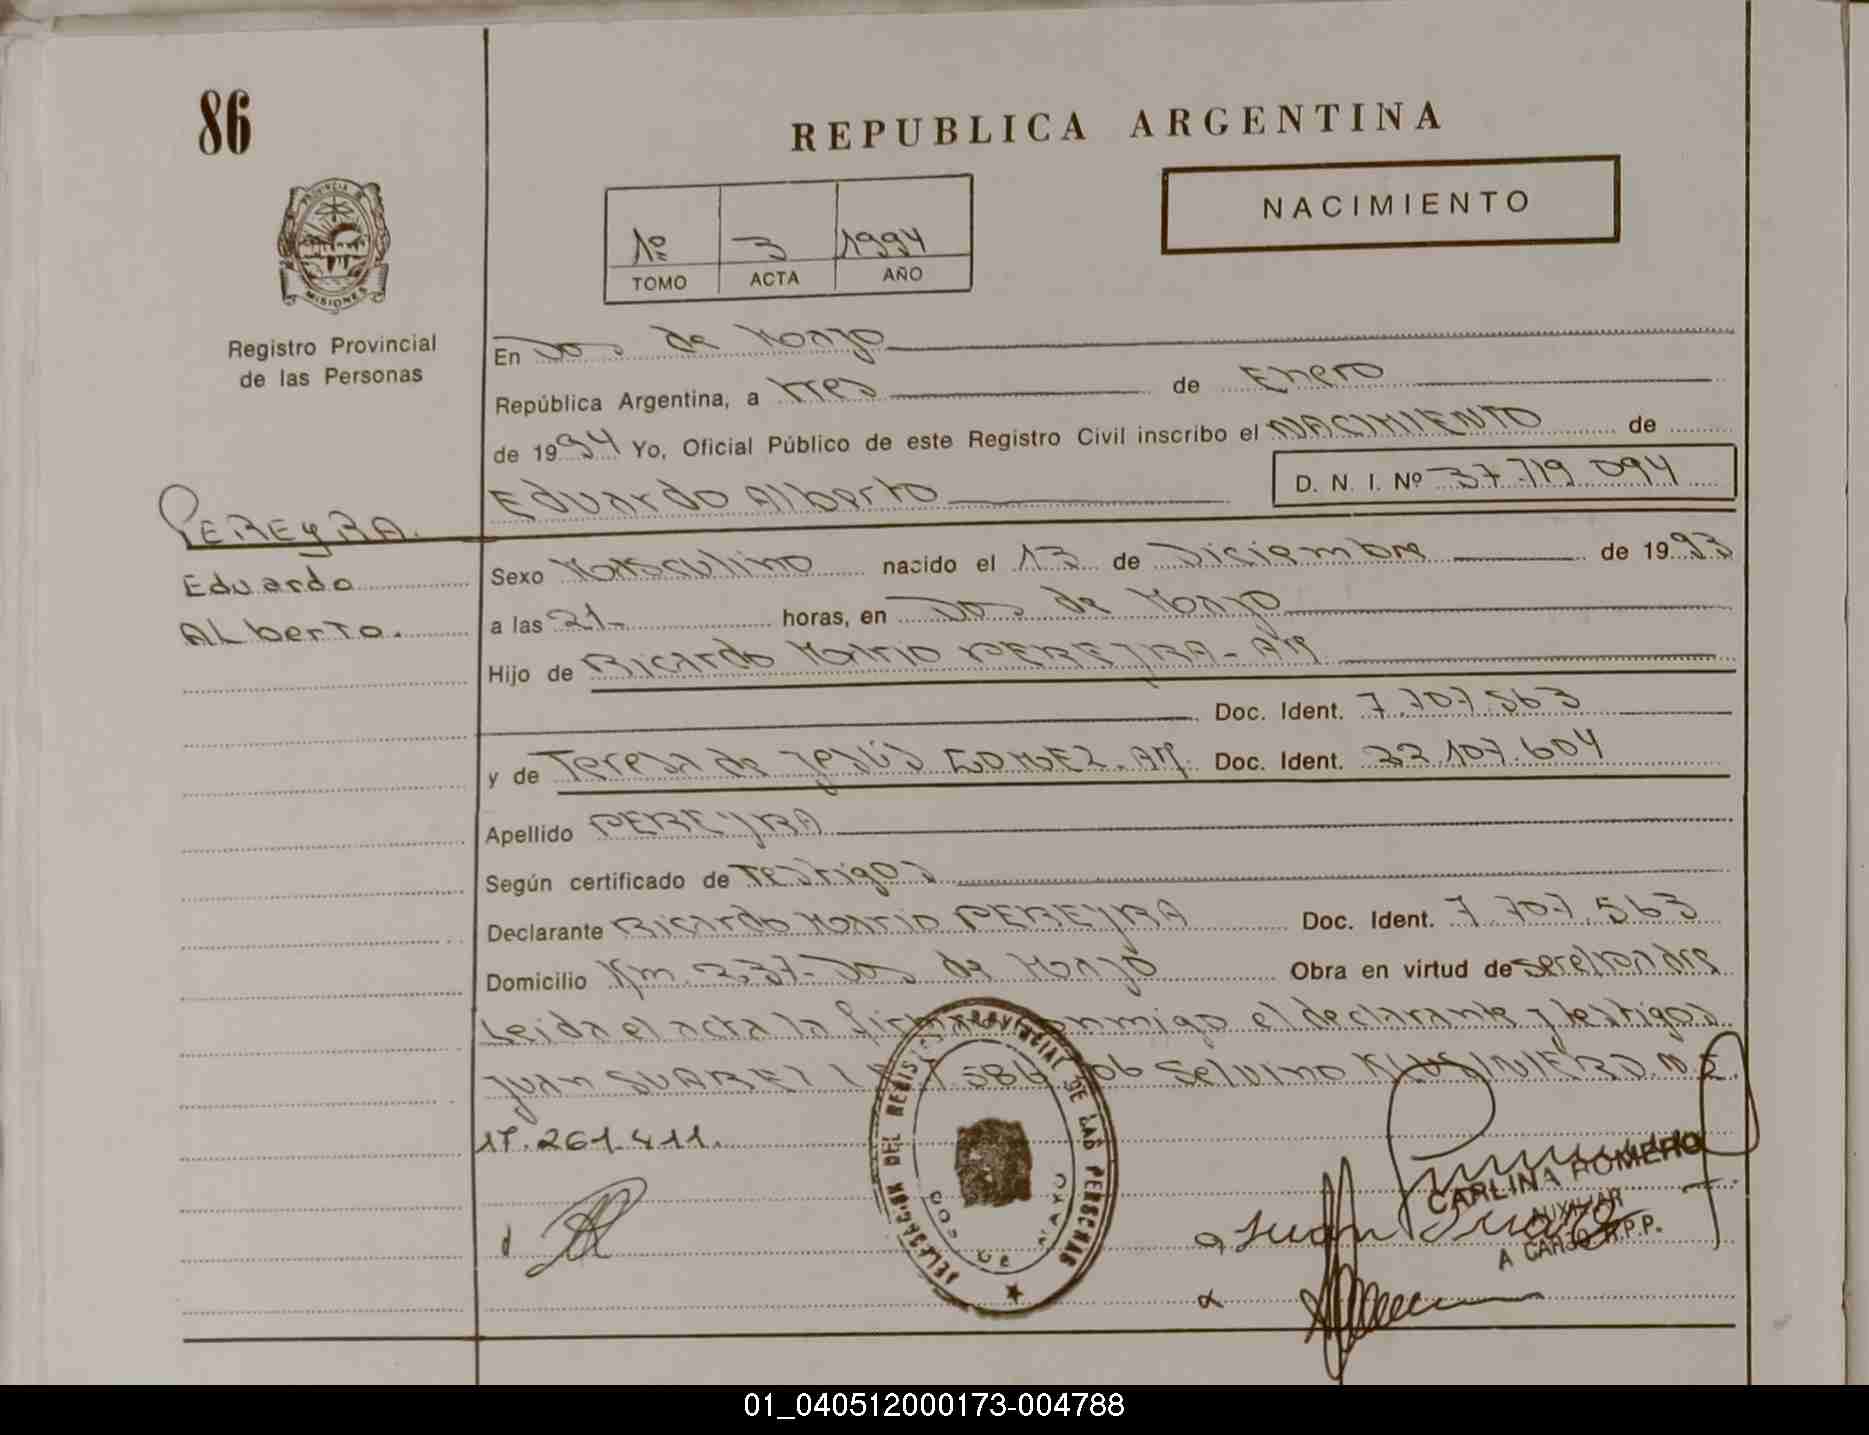 86
REPUBLICA ARGENTINA
NACIMIENTO
1º 3 1994
TOMO ACTA AÑO
PROVINCIA DE
MISIONES
Registro Provincial
de las Personas
En Dos de Mayo
República Argentina, a tres de Enero
de 1994 Yo, Oficial Público de este Registro Civil inscribo el NACIMIENTO de
Eduardo Alberto D. N. I. Nº 37.719.094
PEREYRA.
Eduardo
ALberto.
Sexo Masculino nacido el 13 de Diciembre de 1993
a las 21- horas, en Dos de Mayo
Hijo de Ricardo Mario PEREYRA-Ar
Doc. Ident. 7.707.563
y de Teresa de Jesús GOMEZ.Ar. Doc. Ident. 22.107.604
Apellido PEREYRA
Según certificado de Testigos
Declarante Ricardo Mario PEREYRA Doc. Ident. 7.707.563
Domicilio Km.237-Dos de Mayo Obra en virtud de
Leida el acta la conmigo el declarante y testigos
Juan SUAREZ Selvino D.N.I.
17.261.411.
DELEGACION DEL REGISTRO PROVINCIAL DE LAS PERSONAS
DOS DE MAYO
CARLINA ROMERO
AUXILIAR
A CARGO R.P.P.
Juan Suarez
01_040512000173-004788